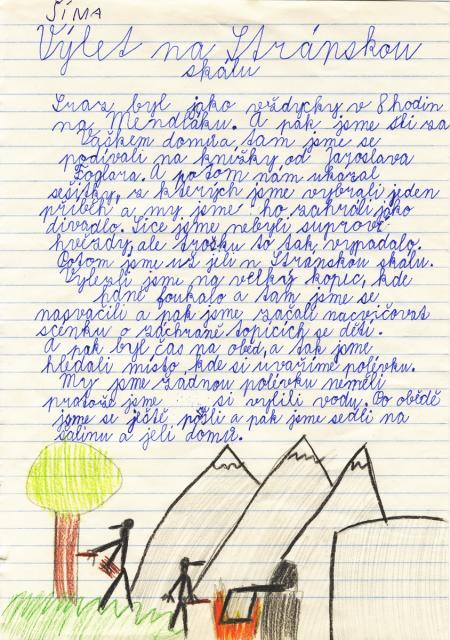 ŠÍMA
Výlet na Stránskou
skálu
Sraz byl jako vždycky v 8 hodin
na Mendláku. A pak jsme šli za
Vaškem domů a, tam jsme se
podívali na knížky od Jaroslava
Foglara. A potom nám ukázal
sešitky, z kterých jsme vybrali jeden
příběh a my jsme ho zahráli jako
divadlo. Sice jsme nebyli suprové
hvězdy, ale trošku to tak vypadalo.
Potom jsme už jeli n Stránskou skálu.
Vylezli jsme na velký kopec, kde
hdně foukalo a tam jsme se
nasvačili a pak jsme začali nacvičovat
scénku o záchraně topicích se dětí.
A pak byl čas na oběd, a tak jsme
hledali místo, kde si uvaříme polívku.
My jsme žádnou polívku neměli
protože jsme si vylili vodu. Po obědě
jsme se ještě prošli a pak jsme sedli na
šalinu a jeli domů.